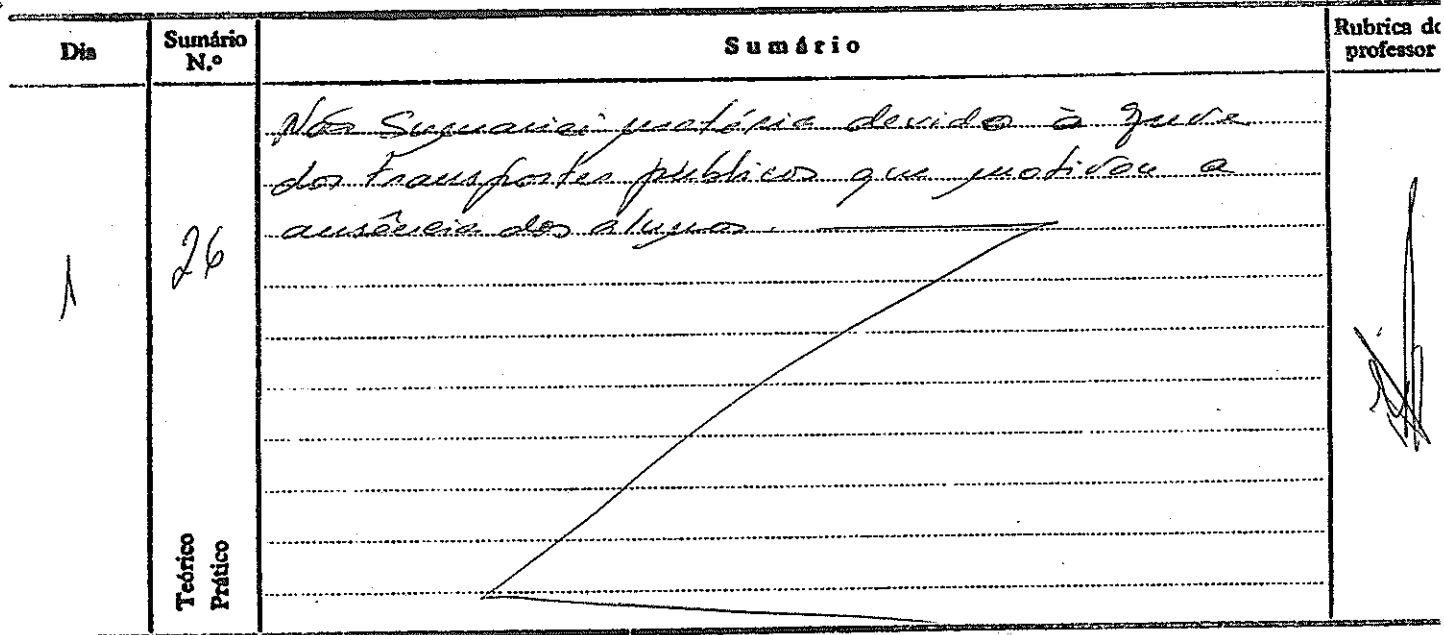 Dia
Sumário N.º
Sumário
Rubrica do professor
1
26
Não Sumariei matéria devido à greve
dos transportes públicos que motivou a
ausência dos alunos.
Teórico
Prático